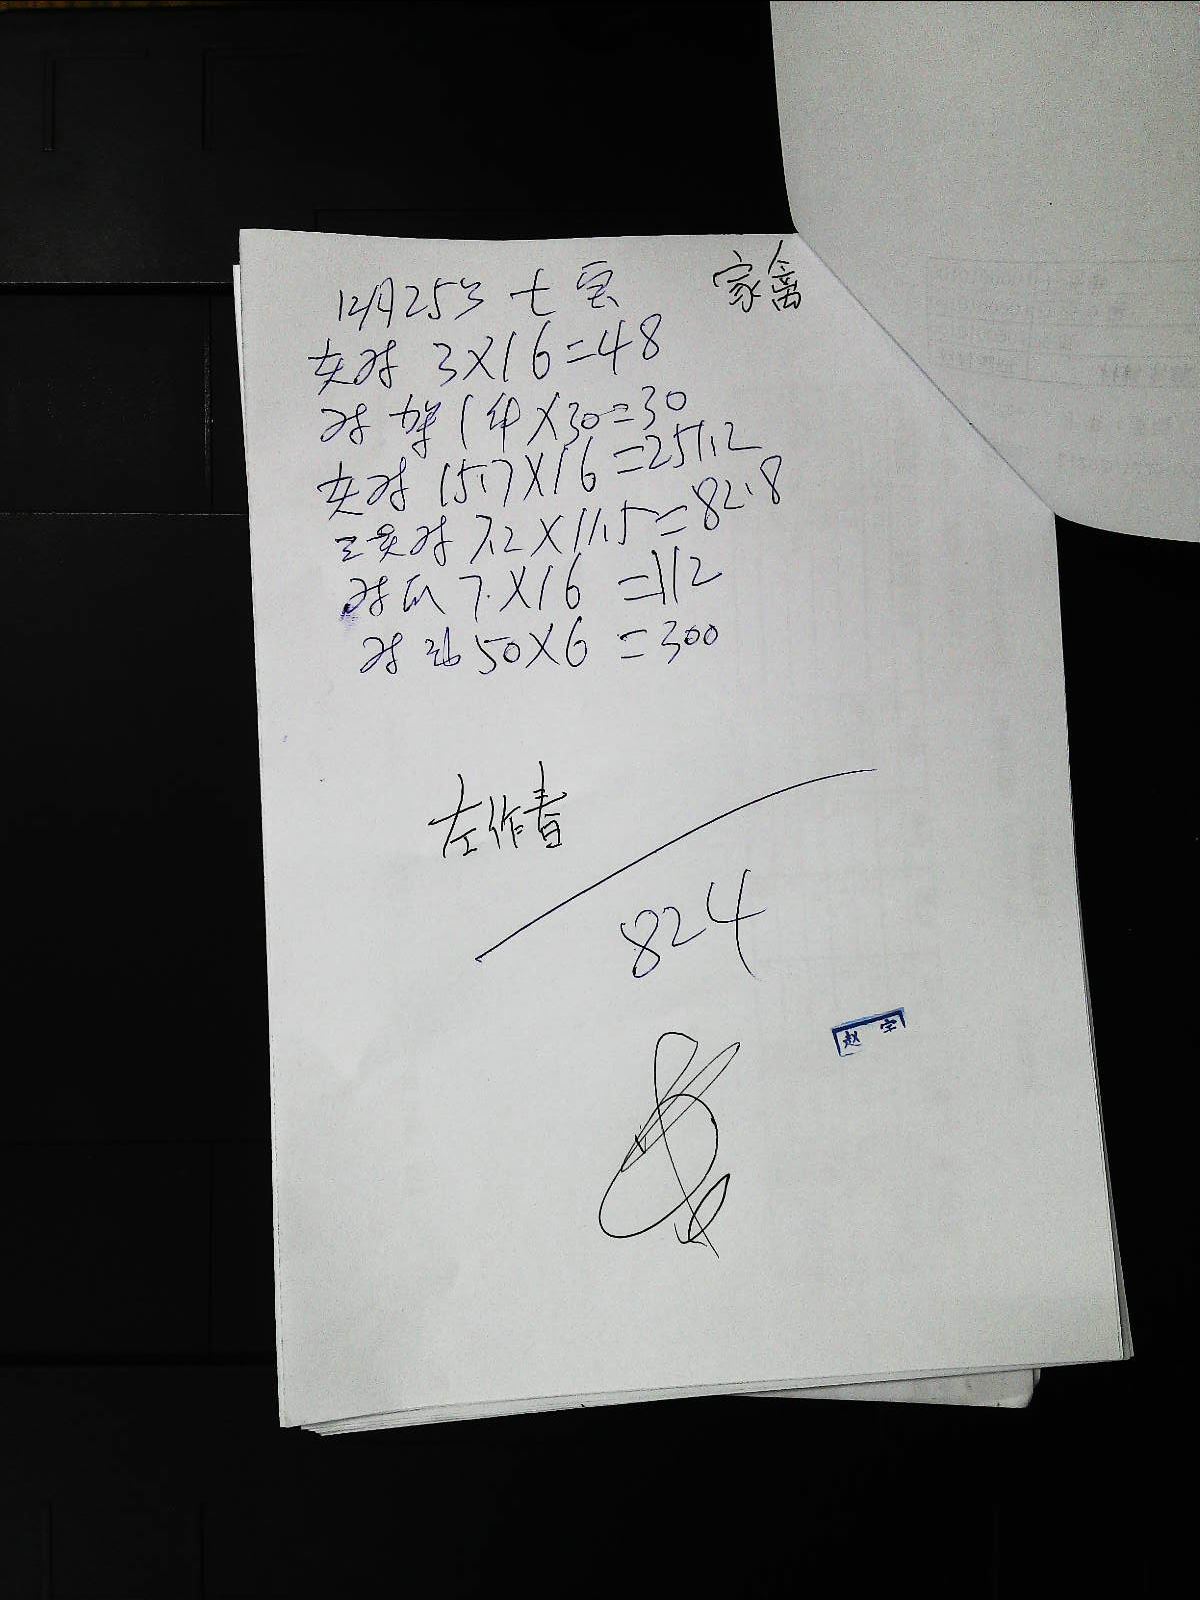 12月25号 七贝 家禽
灰对 3×16=48
对架1个×30=30
灰对 15.7×16=251.2
三黄对 7.2×11.5=82.8
对爪 7.×16=112
对 50×6=300
左作春
824
赵宇